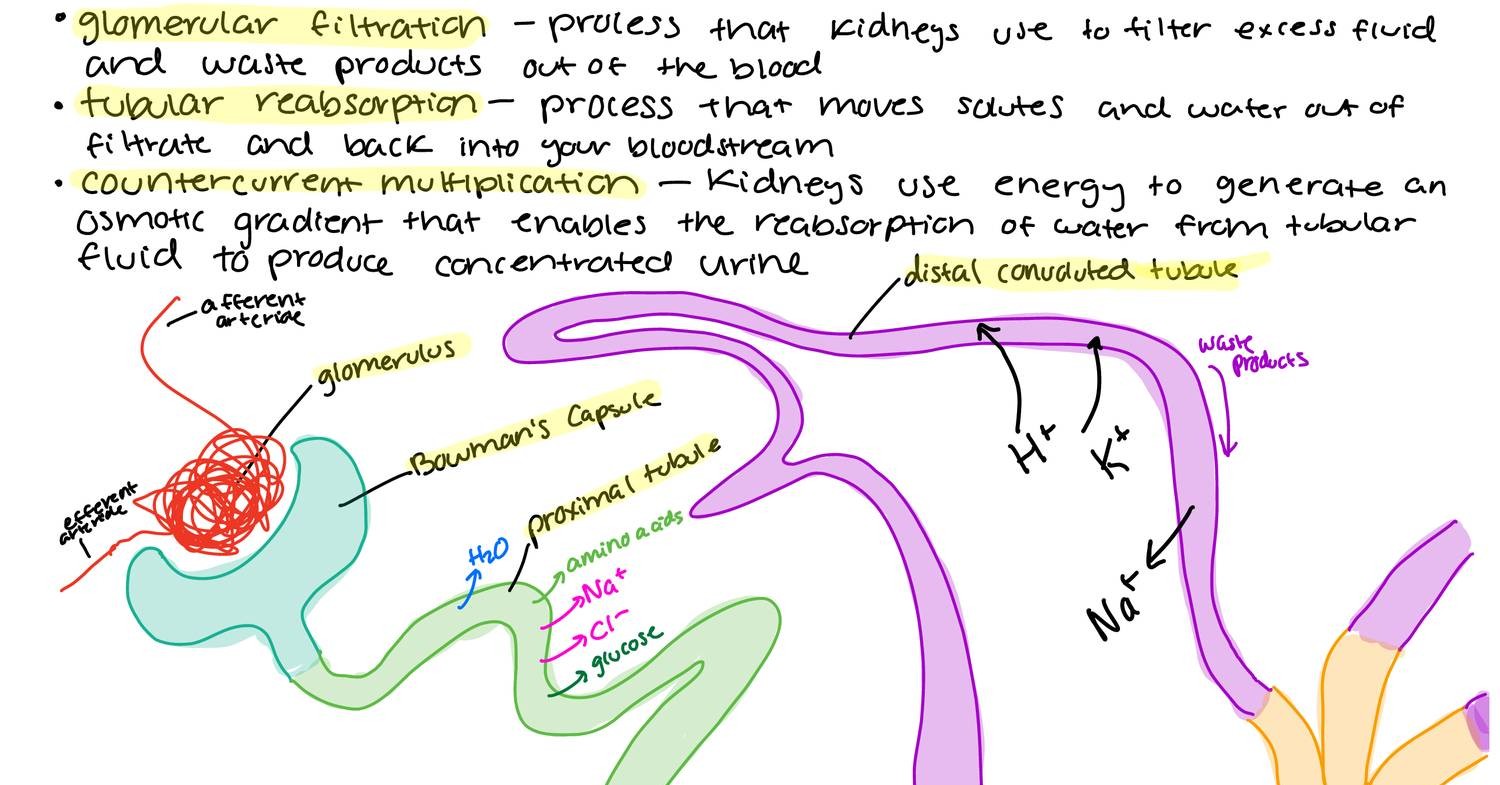 • glomerular filtration – process that kidneys use to filter excess fluid
and waste products out of the blood
• tubular reabsorption – process that moves solutes and water out of
filtrate and back into your bloodstream
• countercurrent multiplication – kidneys use energy to generate an
osmotic gradient that enables the reabsorption of water from tubular
fluid to produce concentrated urine
distal convoluted tubule
afferent
arteriole
glomerulus
Bowman's Capsule
efferent
arteriole
proximal tubule
H2O
amino acids
Na+
Cl-
glucose
waste
products
H+
K+
Na+